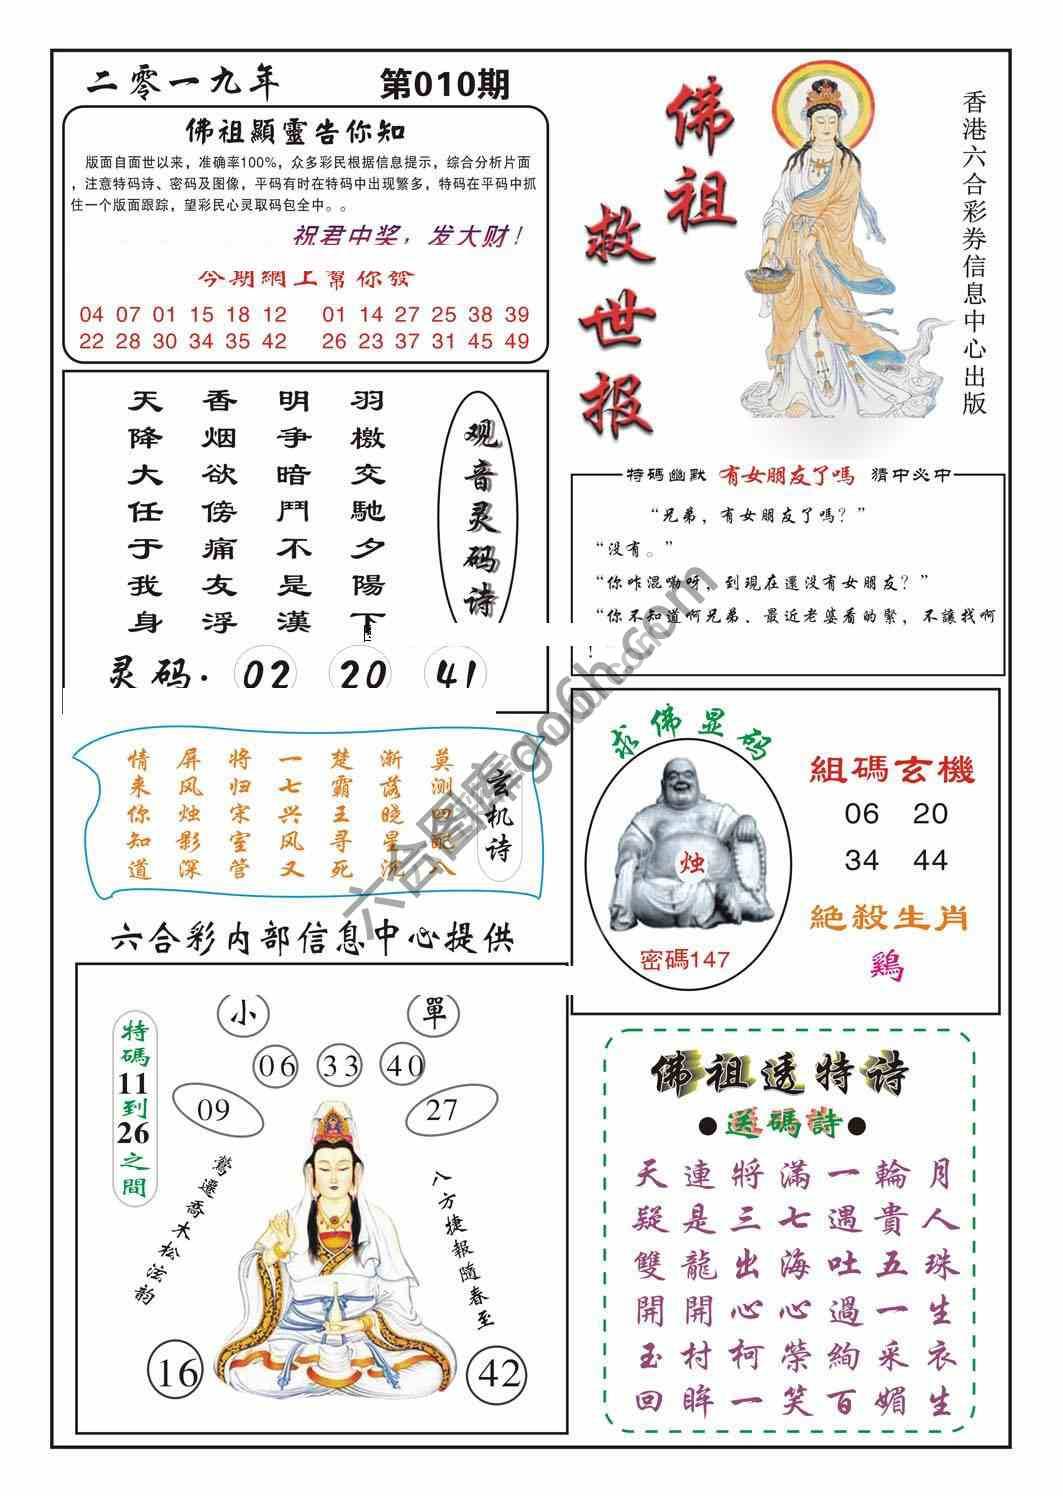 二零一九年 第010期
佛祖顯靈告你知
版面自面世以来，准确率100%，众多彩民根据信息提示，综合分析片面
，注意特码诗、密码及图像，平码有时在特码中出现繁多，特码在平码中抓
住一个版面跟踪，望彩民心灵取码包全中。。
祝君中奖，发大财！
今期網上幫你發
04 07 01 15 18 12 01 14 27 25 38 39
22 28 30 34 35 42 26 23 37 31 45 49
佛祖救世报
香港六合彩券信息中心出版
观音灵码诗
羽檄交馳夕陽下
明争暗鬥不是漢
香烟欲傍痛友浮
天降大任于我身
灵码. 02 20 41
特碼幽默 有女朋友了嗎 猜中必中
“兄弟，有女朋友了嗎？”
“没有。”
“你咋混嘞呀，到現在還没有女朋友？”
“你不知道啊兄弟、最近老婆看的緊，不讓找啊
！
玄机诗
莫测四配八
渐落晓星沉
楚霸王寻死
一七兴风又
将归宋室管
屏风烛影深
情来你知道
六合彩内部信息中心提供
求佛显码
烛
密碼147
組碼玄機
06 20
34 44
絕殺生肖
鷄
小 單
06 33 40
09 27
特碼11到26之間
鶯遷喬木松泫韵
八方捷報隨春至
16 42
佛祖透特诗
●送碼詩●
天連將滿一輪月
疑是三七遇貴人
雙龍出海吐五珠
開開心心過一生
玉村柯榮絢采衣
回眸一笑百媚生
六合图库go6h.com